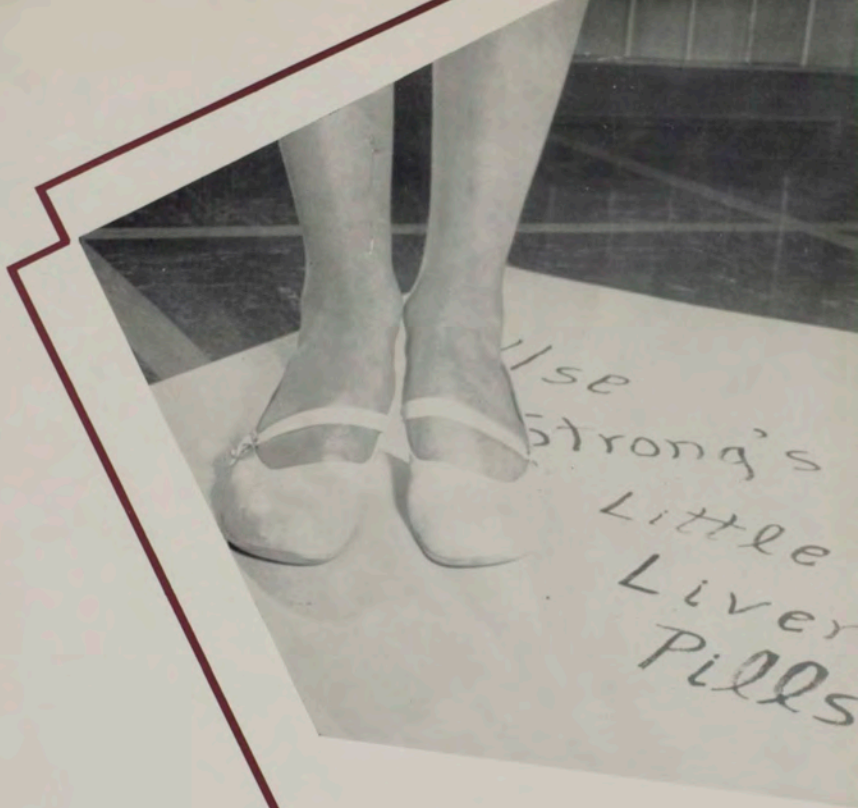 Use
Strong's
Little
Liver
Pills